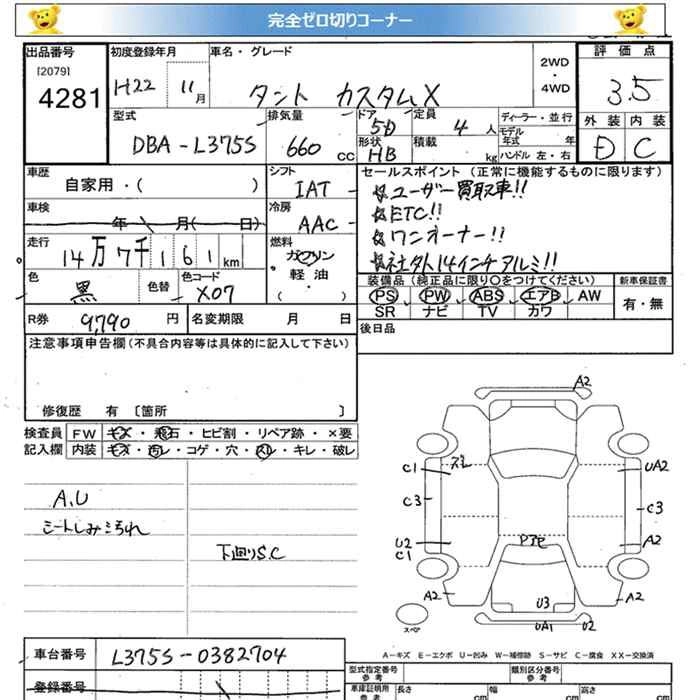 完全ゼロ切りコーナー
出品番号 初度登録年月 車名・グレード 評価点
[2079] 4281 H22 11月 タント カスタムX 2WD ・ 4WD 3.5
型式 排気量 ドア 定員 ディーラー・並行 外装 内装
DBA-L375S 660cc 5D 4人 モデル年式 年 D C
形状 HB 積載 kg ハンドル 左・右
車歴 自家用・( ) シフト IAT
セールスポイント (正常に機能するものに限ります)
ユーザー買取車!!
ETC!!
ワンオーナー!!
社外14インチアルミ!!
車検 年 月( 日) 冷房 AAC
走行 14万7千161km 燃料 ガソリン 軽油 ( )
色 黒 色替 色コード X07
装備品 (純正品に限り○をつけてください) 新車保証書
PS PW ABS エアB AW 有・無
SR ナビ TV カワ
R券 9,790円 名変期限 月 日 後日品
注意事項申告欄 (不具合内容等は具体的に記入して下さい)
修復歴 有 [箇所 ]
検査員 FW キズ・飛石・ヒビ割・リペア跡・×要
記入欄 内装 キズ・汚レ・コゲ・穴・スレ・キレ・破レ
A.U
シートしみこられ
下廻りS.C
A2
C1 ズレ UA2
C3 C3
U2 C1 PアセA2
A2 U3 A2
スペア UA1 U2
A-キズ E-エクボ U-凹み W-補修跡 S-サビ C-腐食 XX-交換済
車台番号 L375S-0382704
型式指定番号 類別区分番号
登録番号 車庫証明用参考 長さ cm 幅 cm 高さ cm